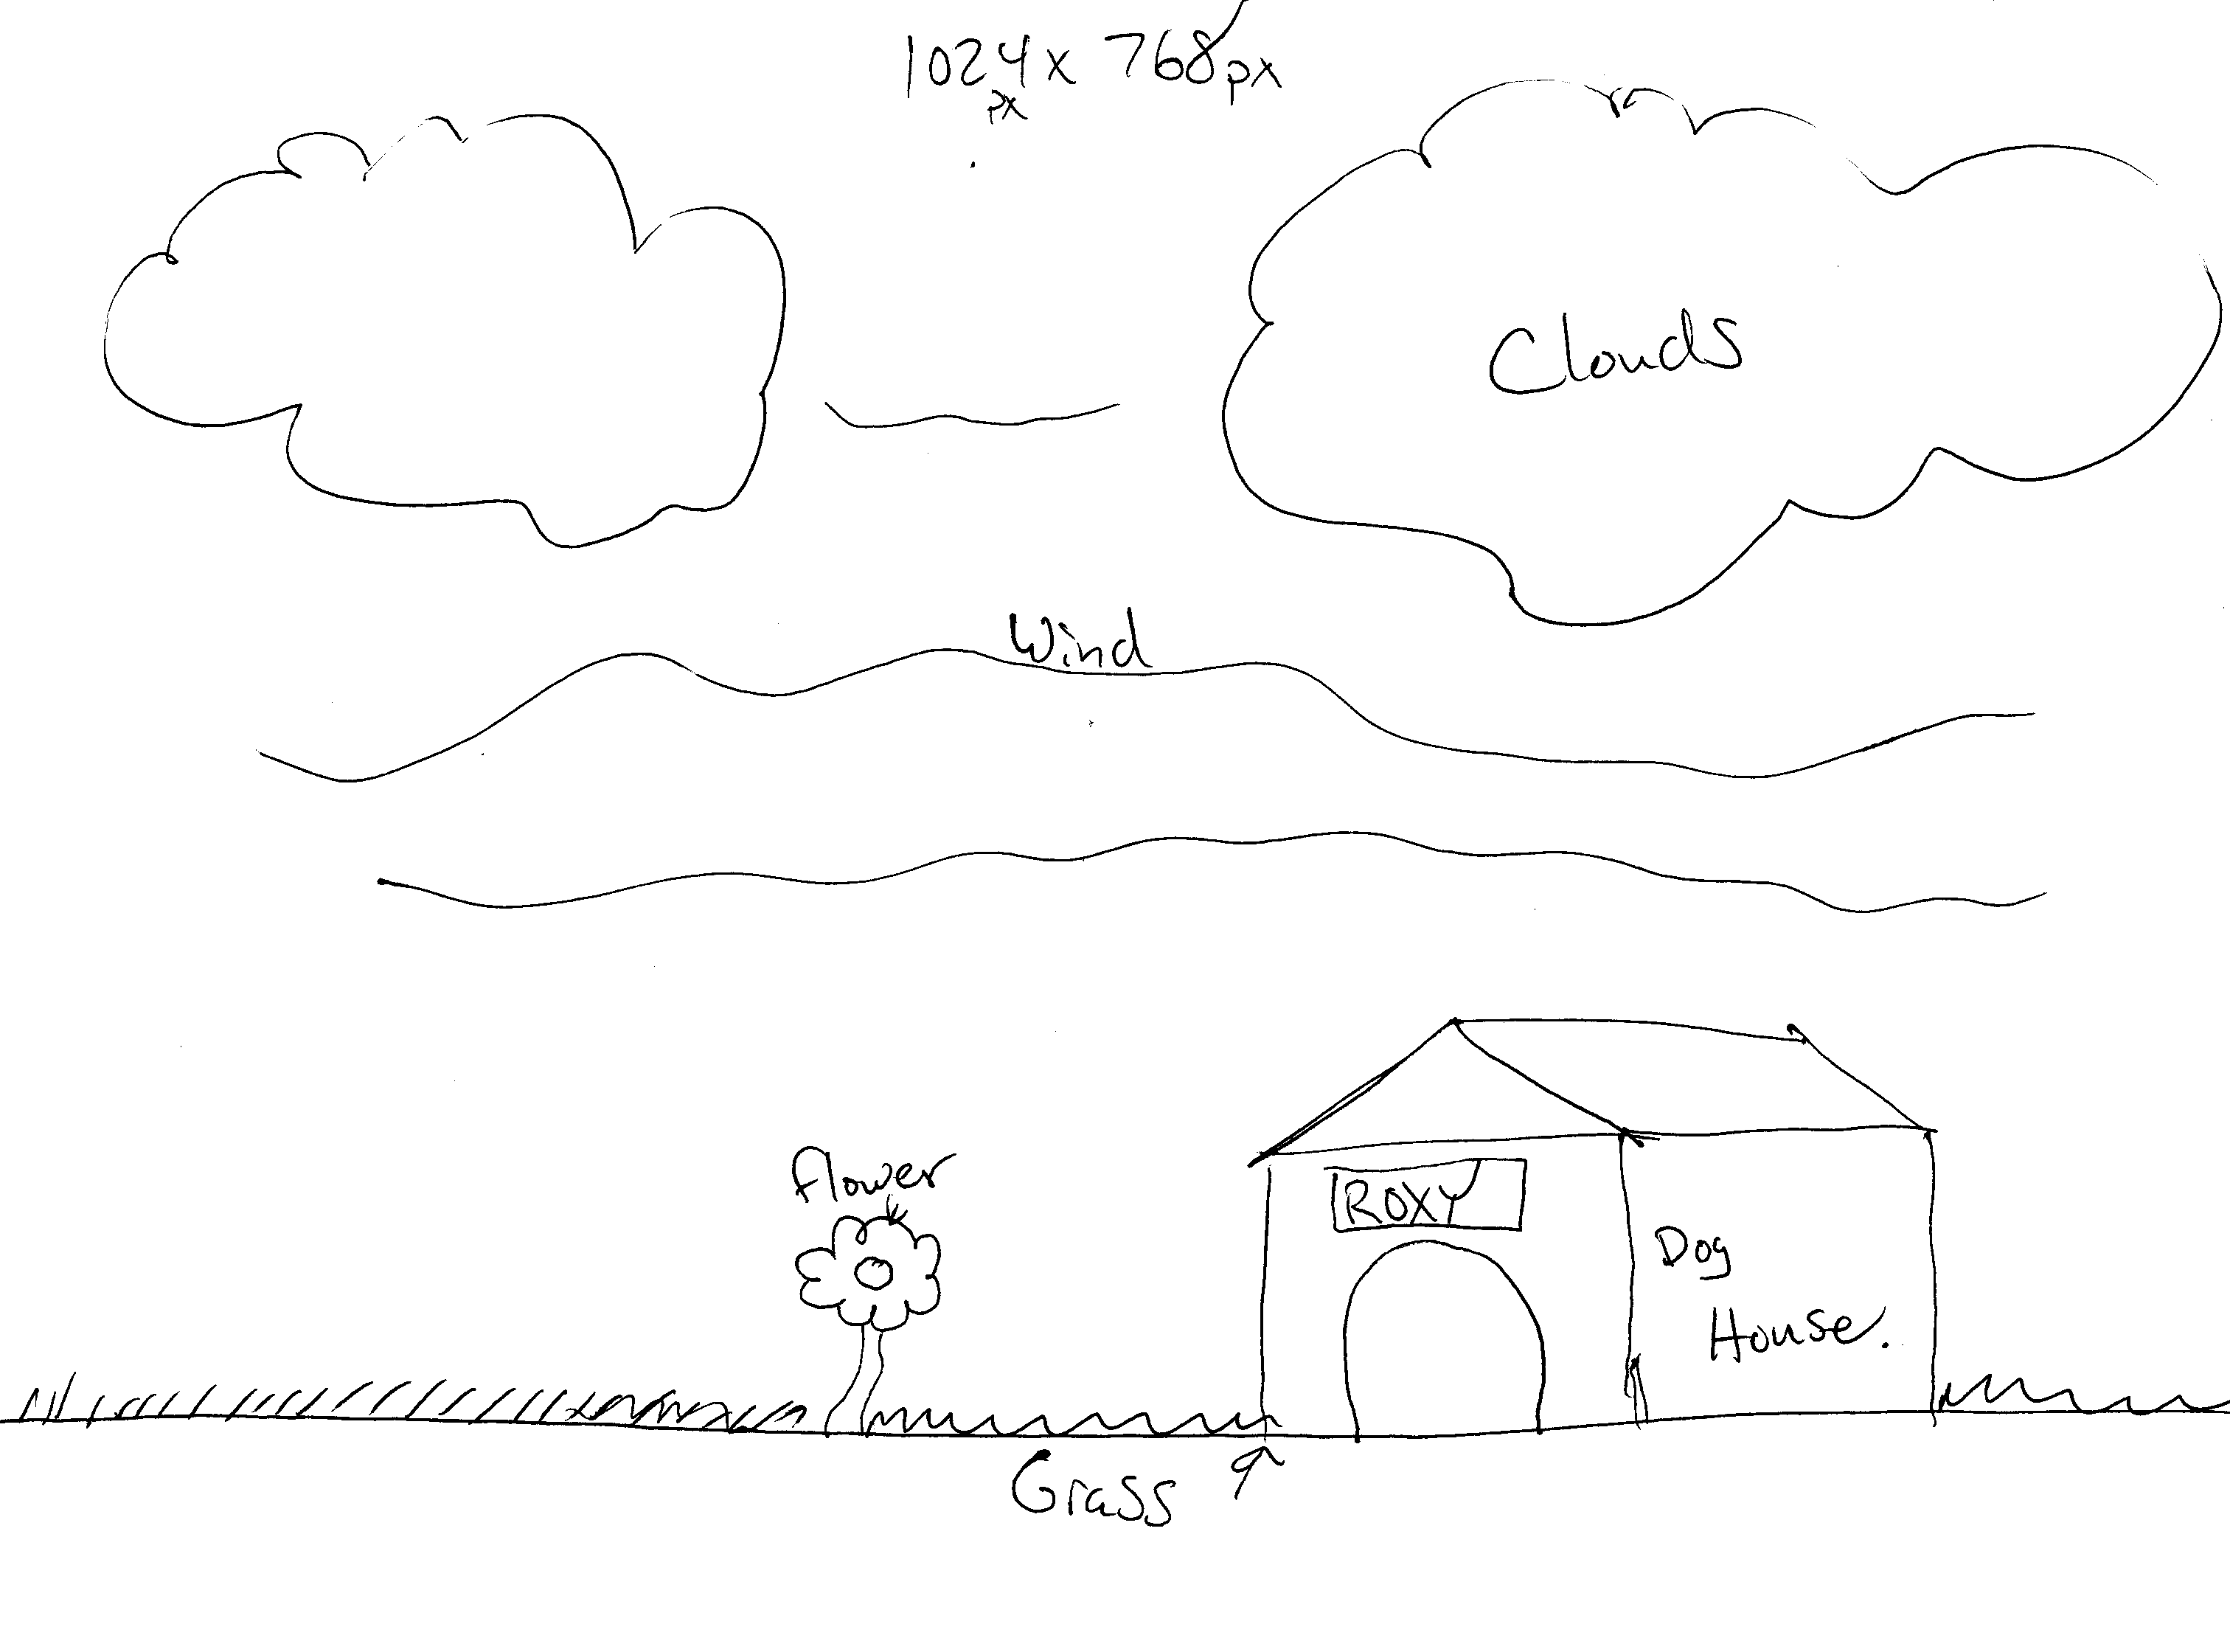 1024 x 768px
px
Clouds
Wind
flower
ROXY
Dog
House.
Grass